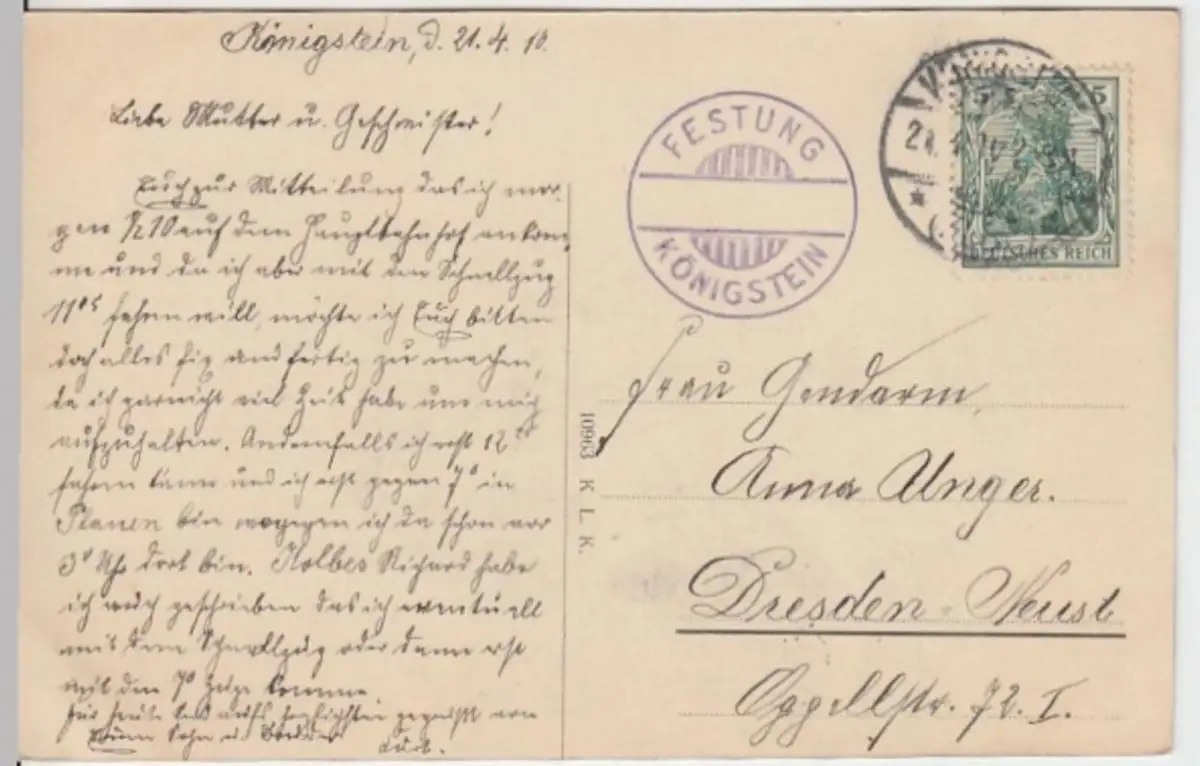 Königstein, d. 21.4.10.
Liebe Mutter u. Geschwister!
Euch zur Mitteilung das ich mor-
gen ½10 auf dem Hauptbahnhof ankom-
me und da ich aber mit den Schnellzug
11⁰⁵ fahren will, möchte ich Euch bitten
doch alles fix und fertig zu machen,
da ich garnicht viel Zeit habe um mich
aufzuhalten. Andernfalls ich erst 12
fahren kann und ich erst gegen 7⁰ in
Plauen bin wogegen ich da schon vor
3⁰ Uhr dort bin. Kolbes Richard habe
ich auch geschrieben das ich eventuell
mit dem Schnellzug oder dann erst
mit den 7⁰ Zuge komme.
Für heute seid aufs herzlichste gegrüßt von
Euren Sohn u. Bruder
FESTUNG
KÖNIGSTEIN
5
DEUTSCHES REICH
10963 K. L. K.
Frau Gendarm
Anna Unger.
Dresden-Neust
Oppellstr. 72. I.